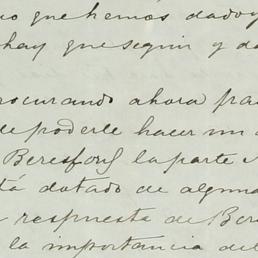 no que hemos dado y
hay que seguir y da
rocurando ahora
de poderle hacer un
Beresford la parte
tá dotado de alguna
respuesta de Ber
la importancia del